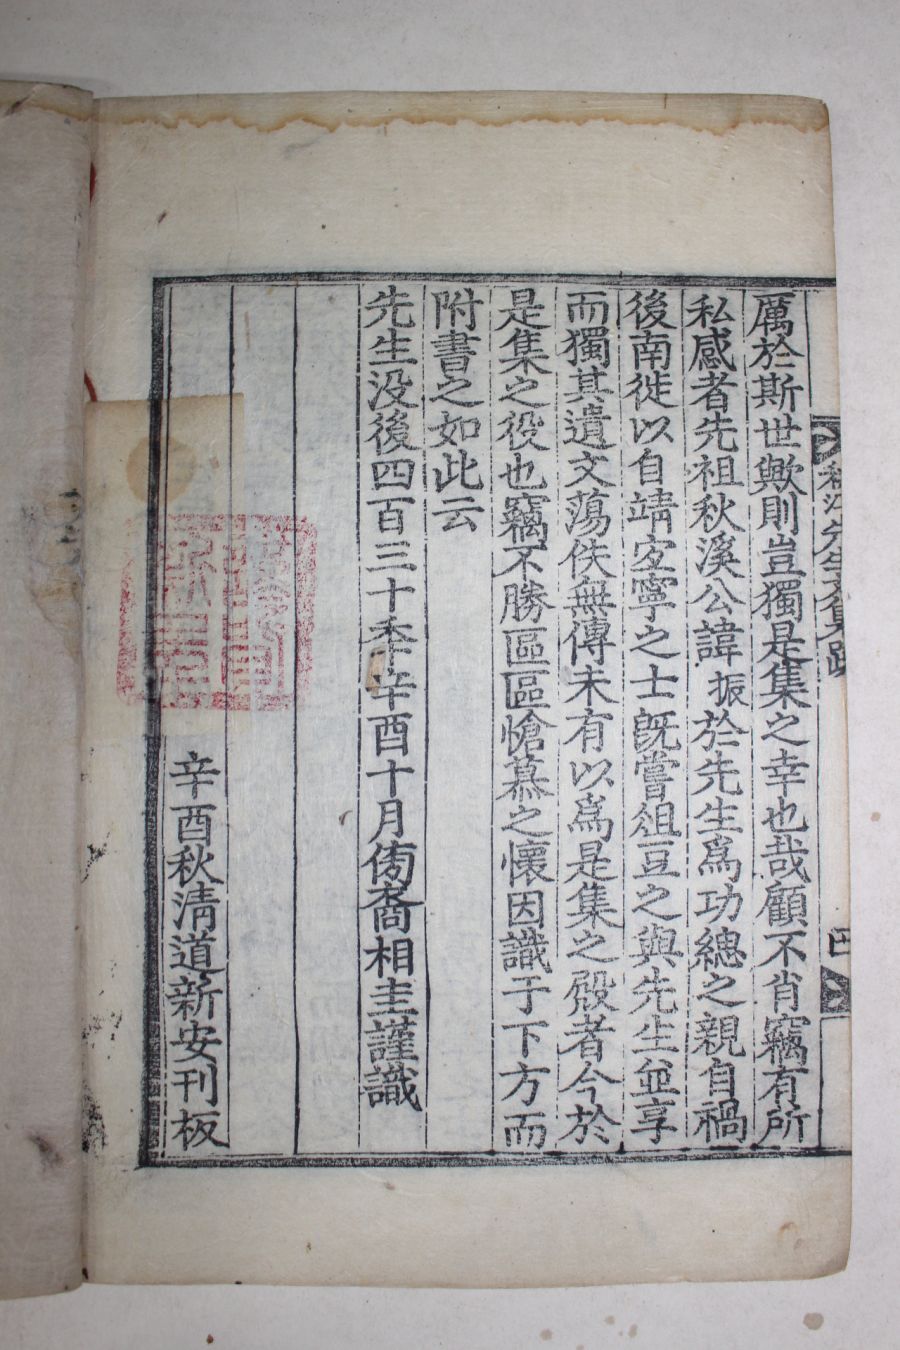 厲於斯世歟則豈獨是集之幸也哉顧不肖竊有所
私感者先祖秋溪公諱振於先生爲功緦之親自禍
後南徙以自靖定寧之士旣嘗俎豆之與先生並享
而獨其遺文蕩佚無傳未有以爲是集之殿者今於
是集之役也竊不勝區區愴慕之懷因識于下方而
附書之如此云
先生没後四百三十秊辛酉十月傍裔相圭謹識
辛酉秋淸道新安刊板
先生文集跋
四